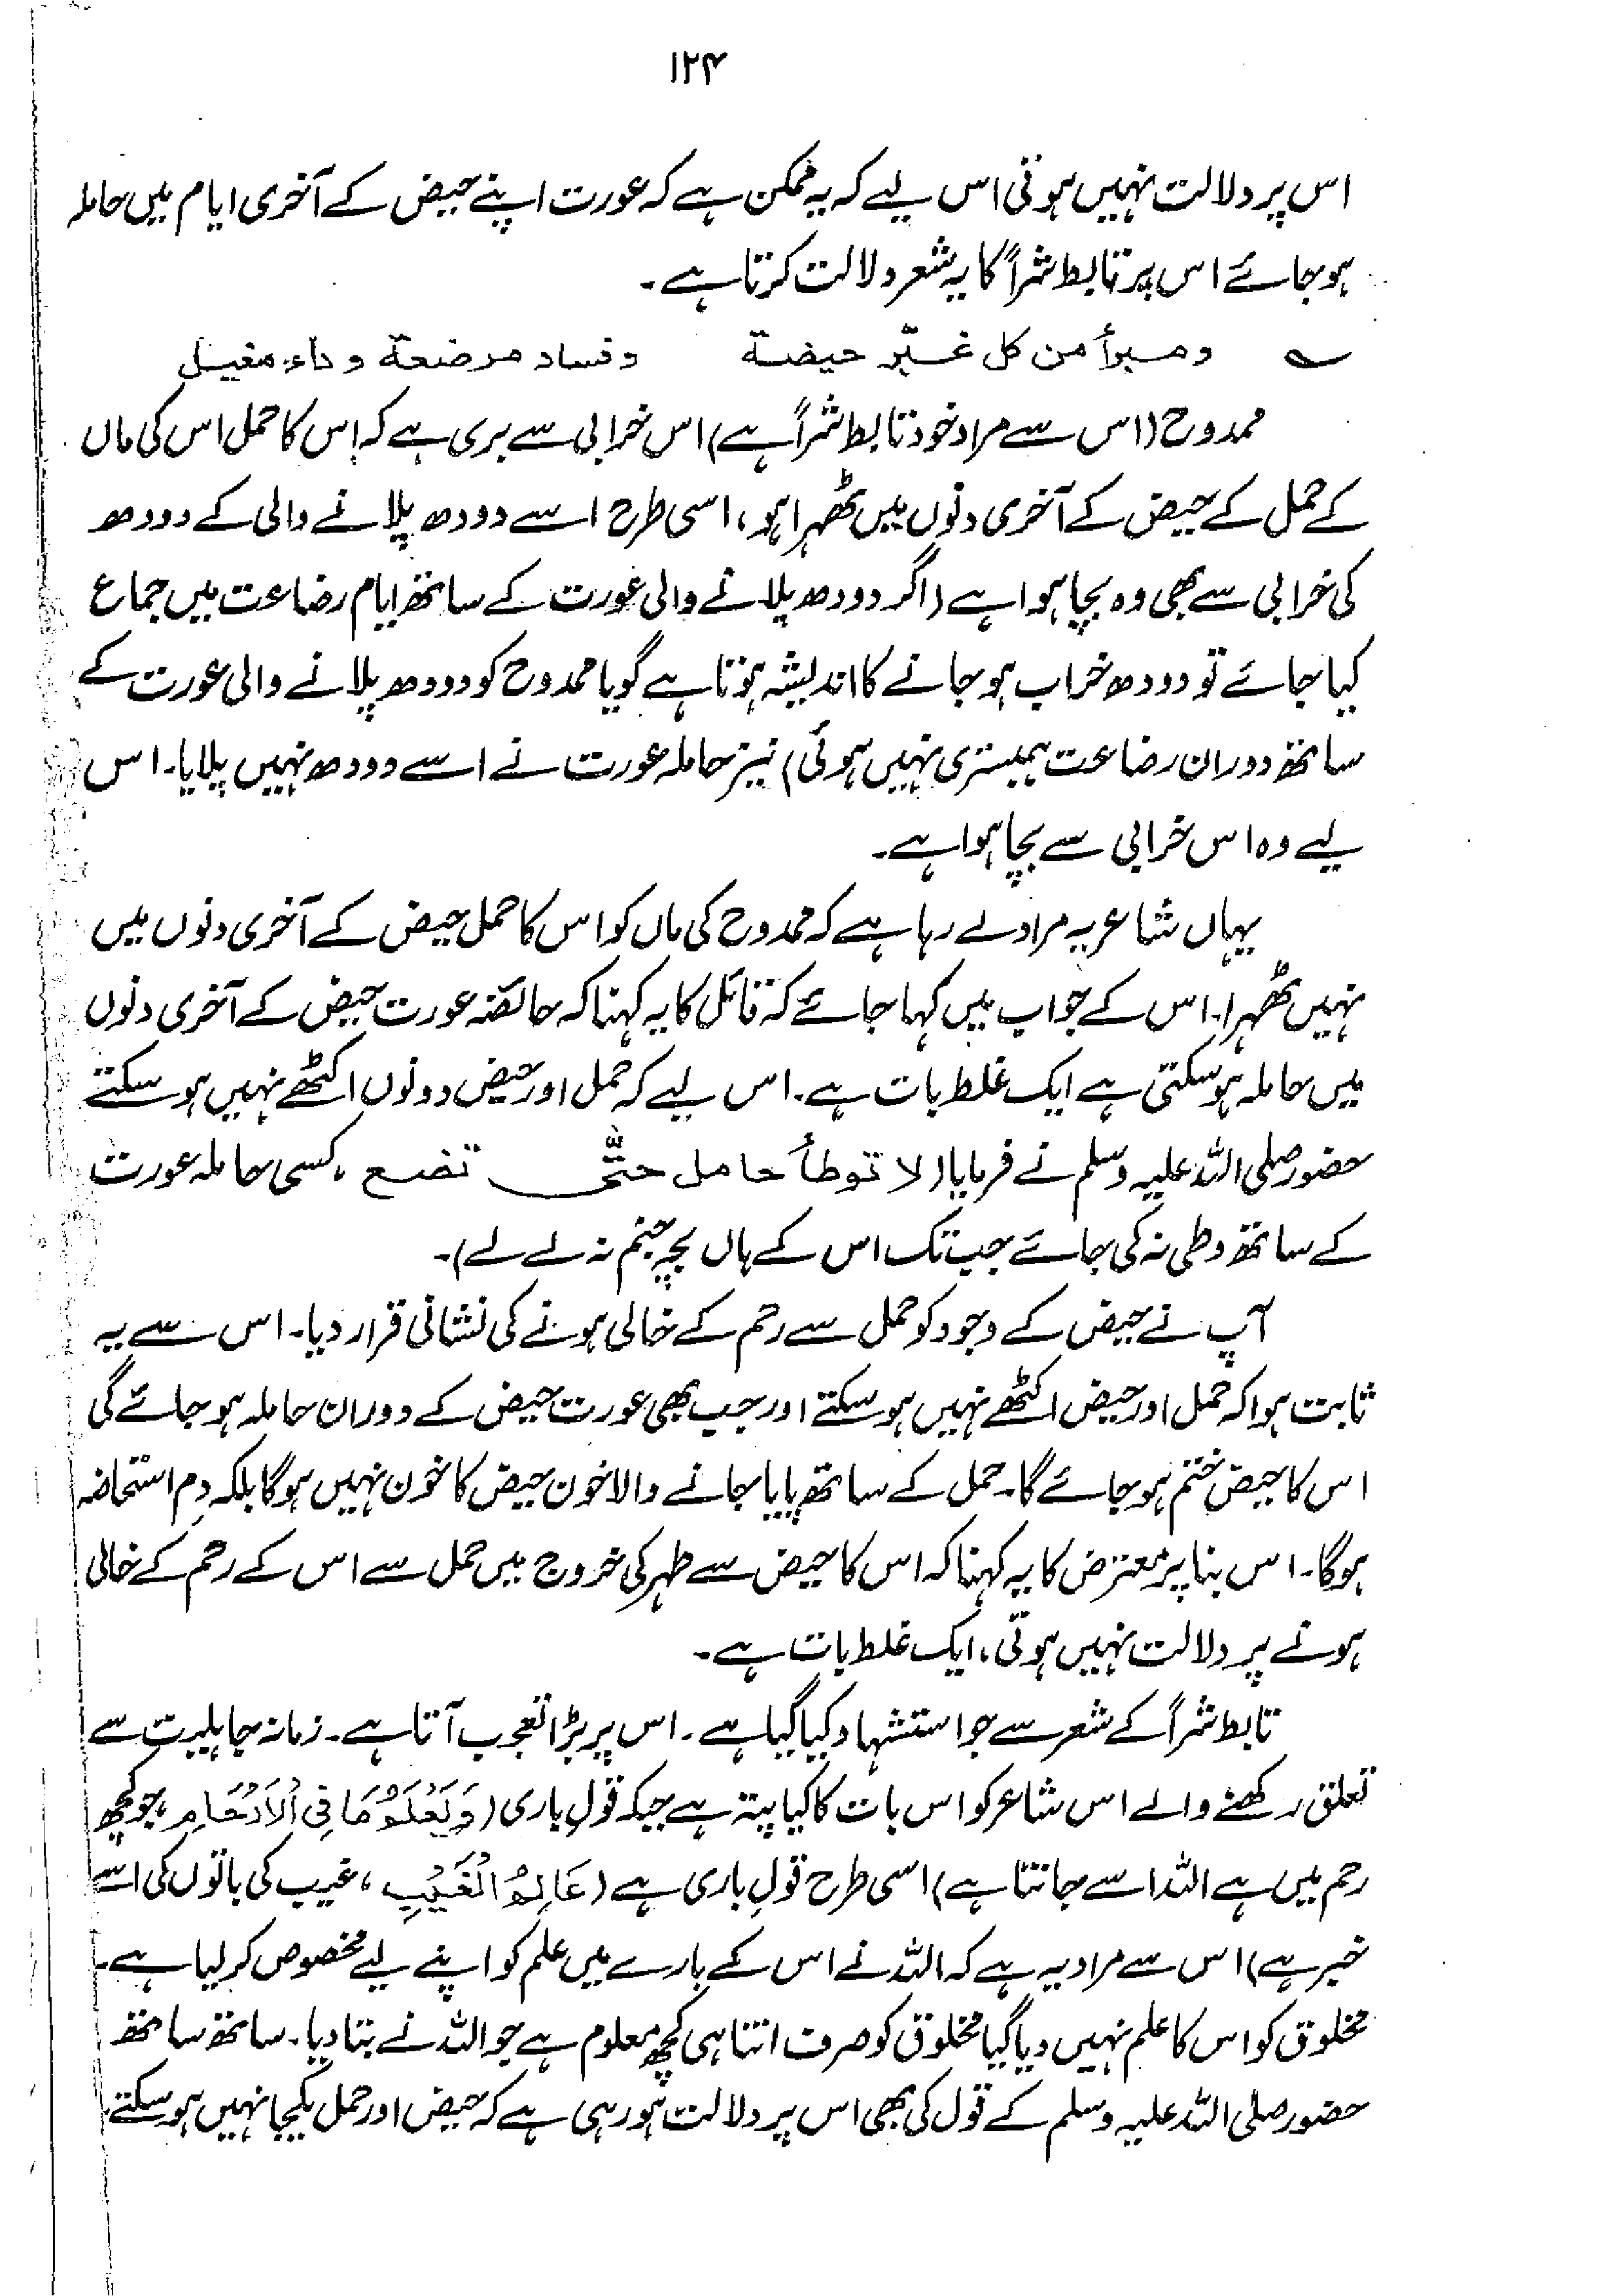 ۱۲۴
اس پر دلالت نہیں ہوتی اس لیے کہ یہ ممکن ہے کہ عورت اپنے حیض کے آخری ایام میں حاملہ
ہو جائے اس پر تابط شراً کا یہ شعر دلالت کرتا ہے۔
؎ ومبرأ من كل غبّر حيضة وفساد مرضعة وداء مغيل
ممدوح (اس سے مراد خود تابط شراً ہے) اس خرابی سے بری ہے کہ اس کا حمل اس کی ماں
کے حمل کے حیض کے آخری دنوں میں ٹھہرا ہو، اسی طرح اسے دودھ پلانے والی کے دودھ
کی خرابی سے بھی وہ بچا ہوا ہے (اگر دودھ پلانے والی عورت کے ساتھ ایام رضاعت میں جماع
کیا جائے تو دودھ خراب ہو جانے کا اندیشہ ہوتا ہے گویا ممدوح کو دودھ پلانے والی عورت کے
ساتھ دوران رضاعت ہمبستری نہیں ہوئی) نیز حاملہ عورت نے اسے دودھ نہیں پلایا۔ اس
لیے وہ اس خرابی سے بچا ہوا ہے۔
یہاں شاعر یہ مراد لے رہا ہے کہ ممدوح کی ماں کو اس کا حمل حیض کے آخری دنوں میں
نہیں ٹھہرا۔ اس کے جواب میں کہا جائے کہ قائل کا یہ کہنا کہ حائضہ عورت حیض کے آخری دنوں
میں حاملہ ہو سکتی ہے ایک غلط بات ہے۔ اس لیے کہ حمل اور حیض دونوں اکٹھے نہیں ہو سکتے
حضور صلی اللہ علیہ وسلم نے فرمایا (لا توطأ حامل حتّٰی تضع، کسی حاملہ عورت
کے ساتھ وطی نہ کی جائے جب تک اس کے ہاں بچہ جنم نہ لے لے)۔
آپ نے حیض کے وجود کو حمل سے رحم کے خالی ہونے کی نشانی قرار دیا۔ اس سے یہ
ثابت ہوا کہ حمل اور حیض اکٹھے نہیں ہو سکتے اور جب بھی عورت حیض کے دوران حاملہ ہو جائے گی
اس کا حیض ختم ہو جائے گا۔ حمل کے ساتھ پایا جانے والا خون حیض کا خون نہیں ہوگا بلکہ دمِ استحاضہ
ہوگا۔ اس بنا پر معترض کا یہ کہنا کہ اس کا حیض سے طہر کی خروج میں حمل سے اس کے رحم کے خالی
ہونے پر دلالت نہیں ہوتی، ایک غلط بات ہے۔
تابط شراً کے شعر سے جو استشہاد کیا گیا ہے۔ اس پر بڑا تعجب آتا ہے۔ زمانہ جاہلیت سے
تعلق رکھنے والے اس شاعر کو اس بات کا کیا پتہ ہے جبکہ قولِ باری (وَيَعْلَمُ مَا فِي الْاَرْحَامِ، جو کچھ
رحم میں ہے اللہ اسے جانتا ہے) اسی طرح قولِ باری ہے (عَالِمُ الْغَيْبِ، غیب کی باتوں کی اسے
خبر ہے) اس سے مراد یہ ہے کہ اللہ نے اس کے بارے میں علم کو اپنے لیے مخصوص کر لیا ہے۔
مخلوق کو اس کا علم نہیں دیا گیا مخلوق کو صرف اتنا ہی کچھ معلوم ہے جو اللہ نے بتا دیا۔ ساتھ ساتھ
حضور صلی اللہ علیہ وسلم کے قول کی بھی اس پر دلالت ہو رہی ہے کہ حیض اور حمل یکجا نہیں ہو سکتے